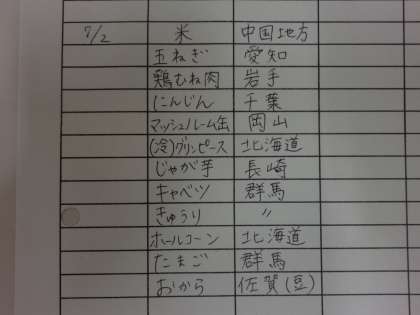 7/2 米 中国地方
玉ねぎ 愛知
鶏むね肉 岩手
にんじん 千葉
マッシュルーム缶 岡山
(冷)グリンピース 北海道
じゃが芋 長崎
キャベツ 群馬
きゅうり 〃
ホールコーン 北海道
たまご 群馬
おから 佐賀(豆)